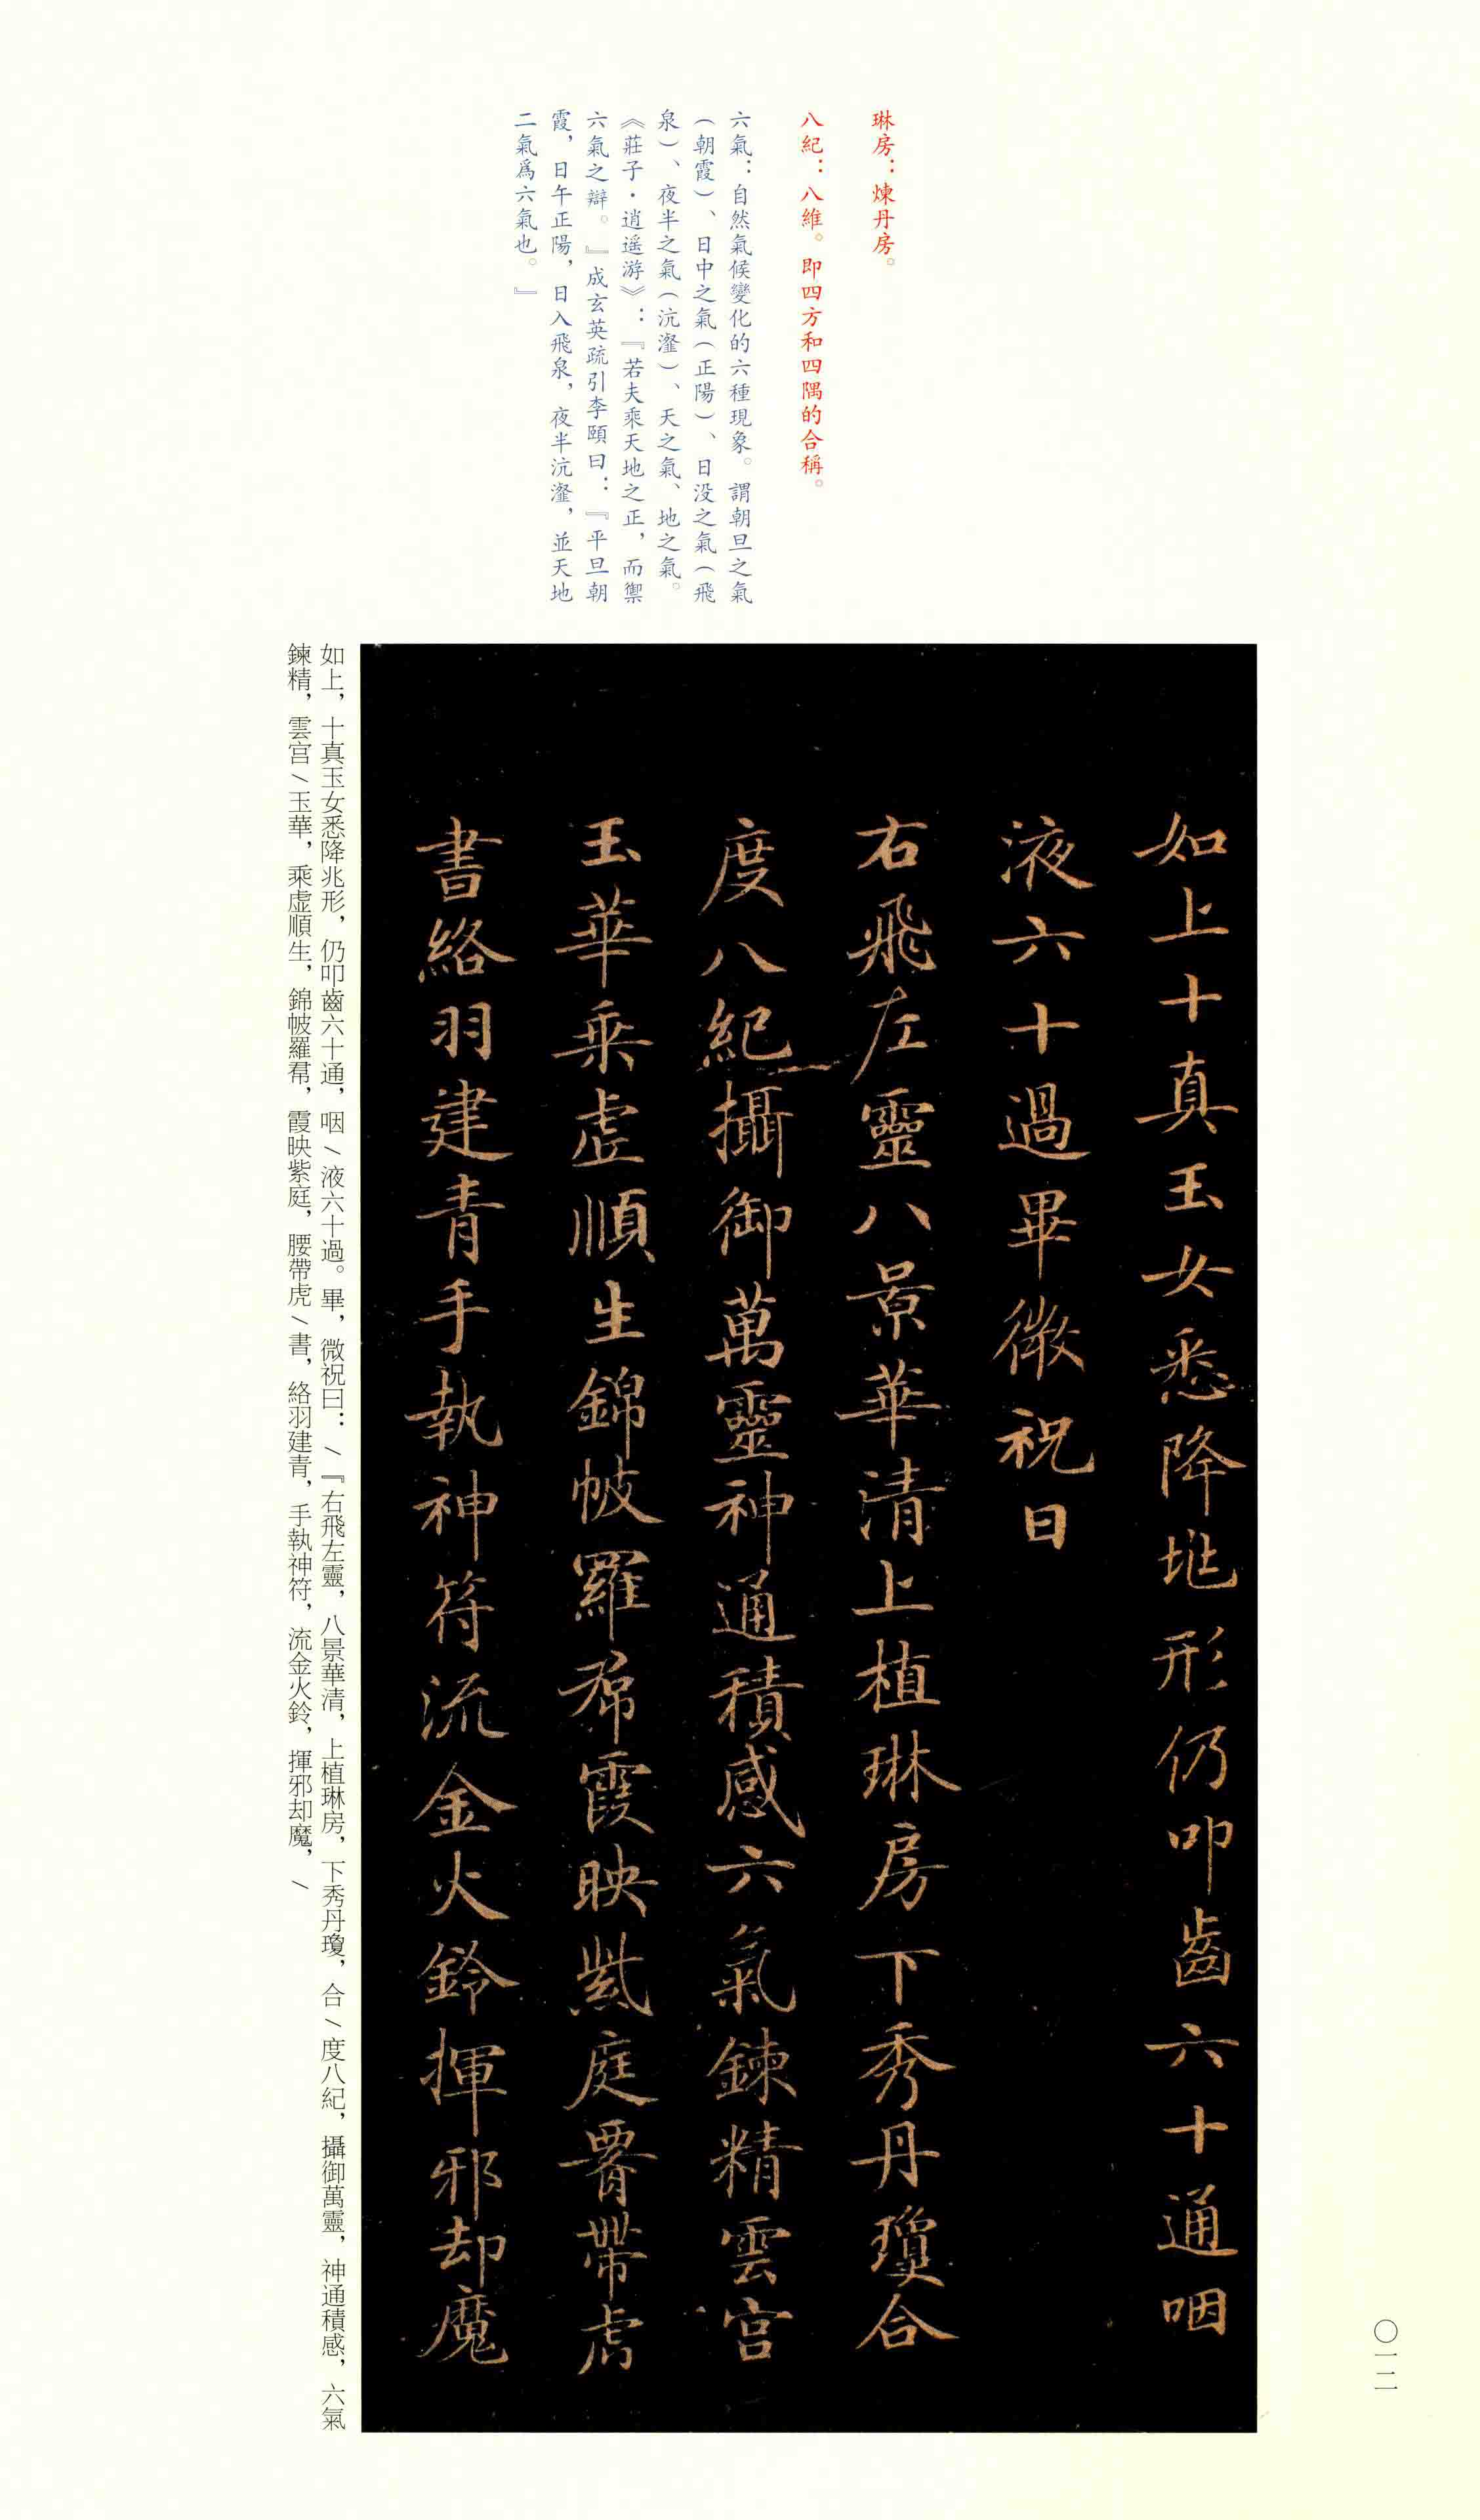 琳房：煉丹房。
八紀：八維。即四方和四隅的合稱。
六氣：自然氣候變化的六種現象。謂朝旦之氣
（朝霞）、日中之氣（正陽）、日没之氣（飛
泉）、夜半之氣（沆瀣）、天之氣、地之氣。
《莊子·逍遥游》：『若夫乘天地之正，而禦
六氣之辯。』成玄英疏引李頤曰：『平旦朝
霞，日午正陽，日入飛泉，夜半沆瀣，並天地
二氣爲六氣也。』
如上十真玉女悉降兆形仍叩齒六十通咽
液六十過畢微祝曰
右飛左靈八景華清上植琳房下秀丹瓊合
度八紀攝御萬靈神通積感六氣鍊精雲宫
玉華乘虛順生錦帔羅帬霞映紫庭腰帶虎
書絡羽建青手執神符流金火鈴揮邪却魔
如上，十真玉女悉降兆形，仍叩齒六十通，咽/液六十過。畢，微祝曰：/『右飛左靈，八景華清，上植琳房，下秀丹瓊，合/度八紀，攝御萬靈，神通積感，六氣
鍊精，雲宫/玉華，乘虚順生，錦帔羅帬，霞映紫庭，腰帶虎/書，絡羽建青，手執神符，流金火鈴，揮邪却魔，/
〇一二